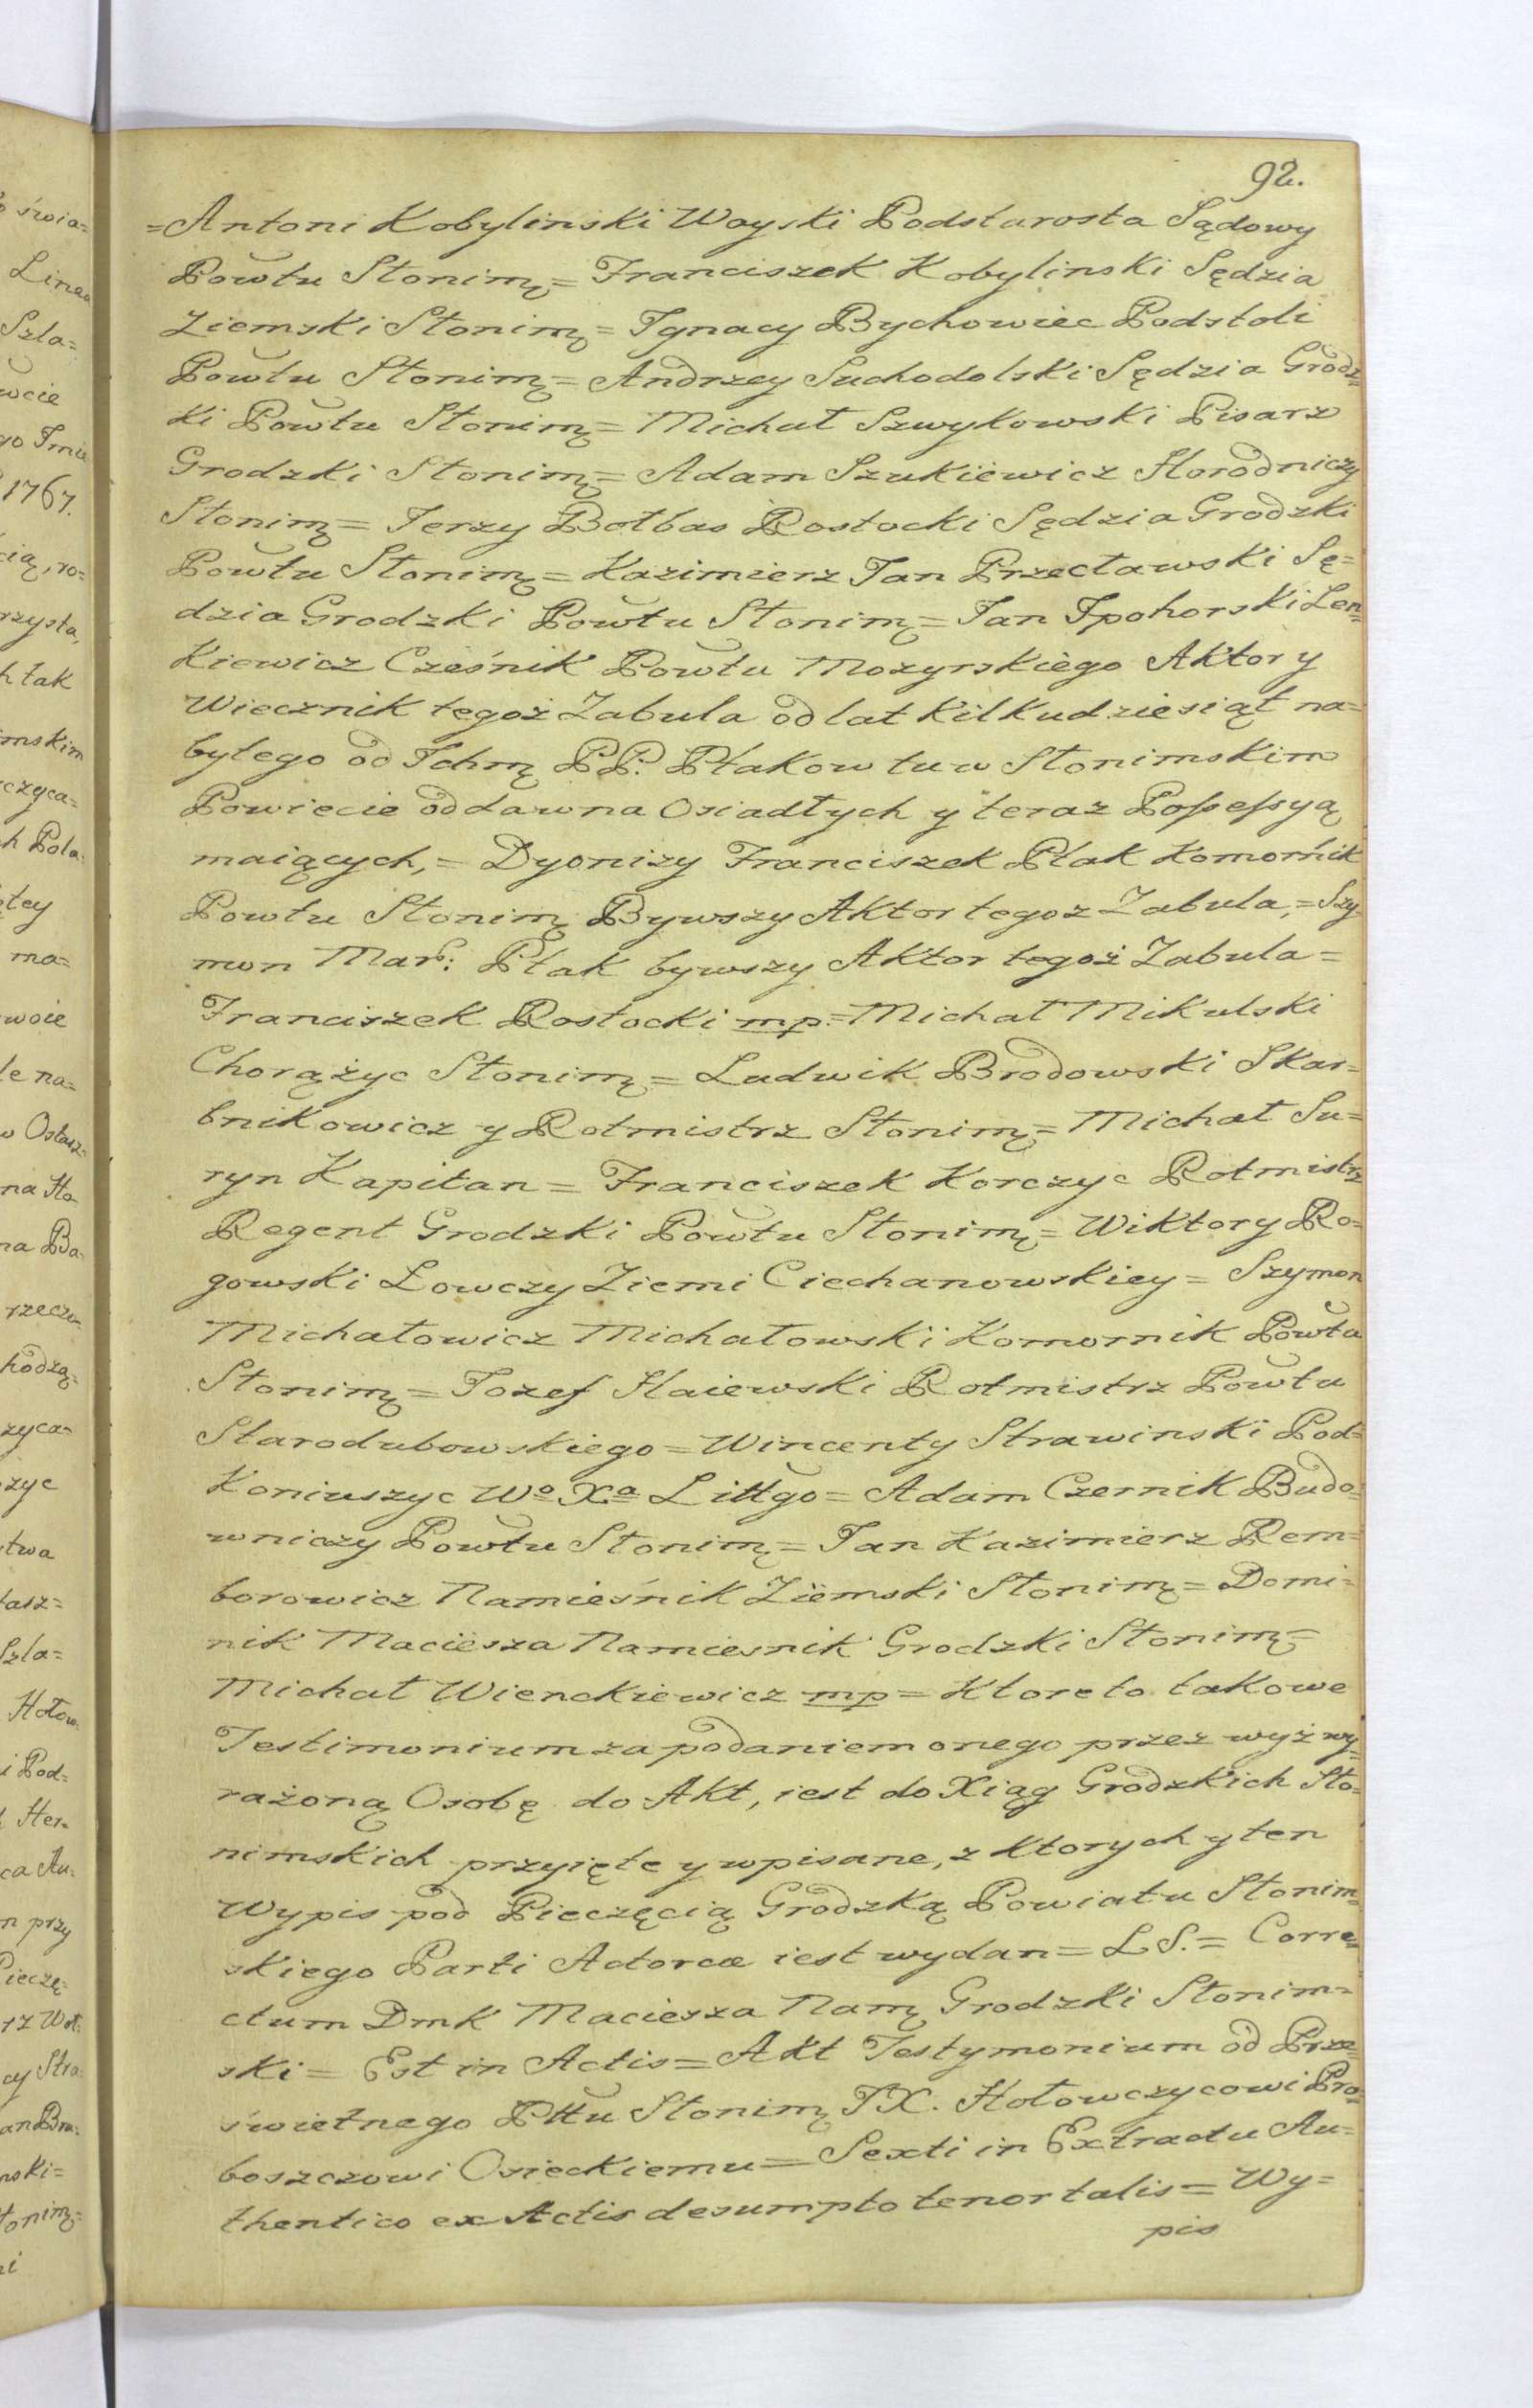 92.
=Antoni Kobylinski Woyski Podstarosta Sądowy
Powtu Słonimą= Franciszek Kobylinski Sędzia
Ziemski Słonimą= Ignacy Bychowiec Podstoli
Powtu Słonimą= Andrzey Suchodolski Sędzia Grodz=
ki Powtu Słonimą= Michał Szwykowski Pisarz
Grodzki Słonimą= Adam Szukiewicz Horodniczy
Słonimą= Jerzy Bołbas Rostocki Sędzia Grodzki
Powtu Słonimą= Kazimierz Jan Przecławski Sę=
dzia Grodzki Powtu Słonimą= Jan Ipohorski Len=
kiewicz Cześnik Powtu Mozyrskiego Aktor y
Wiecznik tegoż Zabula od lat kilkudziesiąt na=
bytego od Ichmą PP. Ptakow tu w Słonimskim
Powiecie oddawna Osiadłych y teraz Possessyą
maiących,= Dyonizy Franciszek Ptak Komornik
Powtu Słonimą Bywszy Aktor tegoz Zabula,= Szy
mon Mar: Ptak bywszy Aktor tegoż Zabula=
Franciszek Rostocki mp.= Michał Mikulski
Chorążyc Słonimą= Ludwik Brodowski Skar=
bnikowicz y Rotmistrz Słonimą= Michał Su=
ryn Kapitan= Franciszek Korczyc Rotmistrz
Regent Grodzki Powtu Słonimą= Wiktory Ro=
gowski Łowczy Ziemi Ciechanowskiey= Szymon
Michałowicz Michałowski Komornik Powtu
Słonimą= Jozef Haiewski Rotmistrz Powtu
Starodubowskiego= Wincenty Strawinski Pod=
Koniuszyc Wo Xa Littgo= Adam Czernik Budo=
wniczy Powtu Słonimą= Jan Kazimierz Rem=
borowicz Namieśnik Ziemski Słonimą= Domi=
nik Maciesza Namiesnik Grodzki Słonimą=
Michał Wienckiewicz mp= Ktore to takowe
Testimonium za podaniem onego przez wyż wy=
rażoną Osobę do Akt, iest do Xiąg Grodzkich Sło=
nimskich przyięte y wpisane, z ktorych y ten
Wypis pod Pieczęcią Grodzką Powiatu Słonim=
skiego Parti Actoreæ iest wydan= L S.= Corre=
ctum Dmk Maciesza Namą Grodzki Słonim=
ski= Est in Actis= Akt Testymonium od Prze=
świetnego Pttu Słonimą JX. Hołowczycowi Pro=
boszczowi Osieckiemu= Sexti in Extractu Au=
thentico ex Actis desumpto tenor talis= Wy=
pis